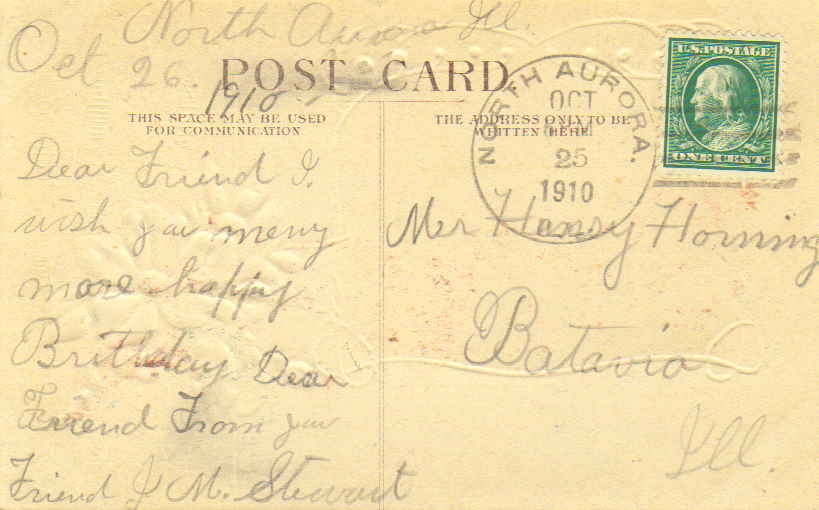 North Aurora Ill.
Oct 26.
1910
POST CARD
THIS SPACE MAY BE USED
FOR COMMUNICATION
THE ADDRESS ONLY TO BE
WRITTEN HERE
NORTH AURORA.
OCT
25
1910
U.S. POSTAGE
ONE CENT
Dear Friend I.
wish you meny
more happy
Brithday Dear
Friend From you
Friend J M. Stewart
Mer Henry Horning
Batavia
Ill.